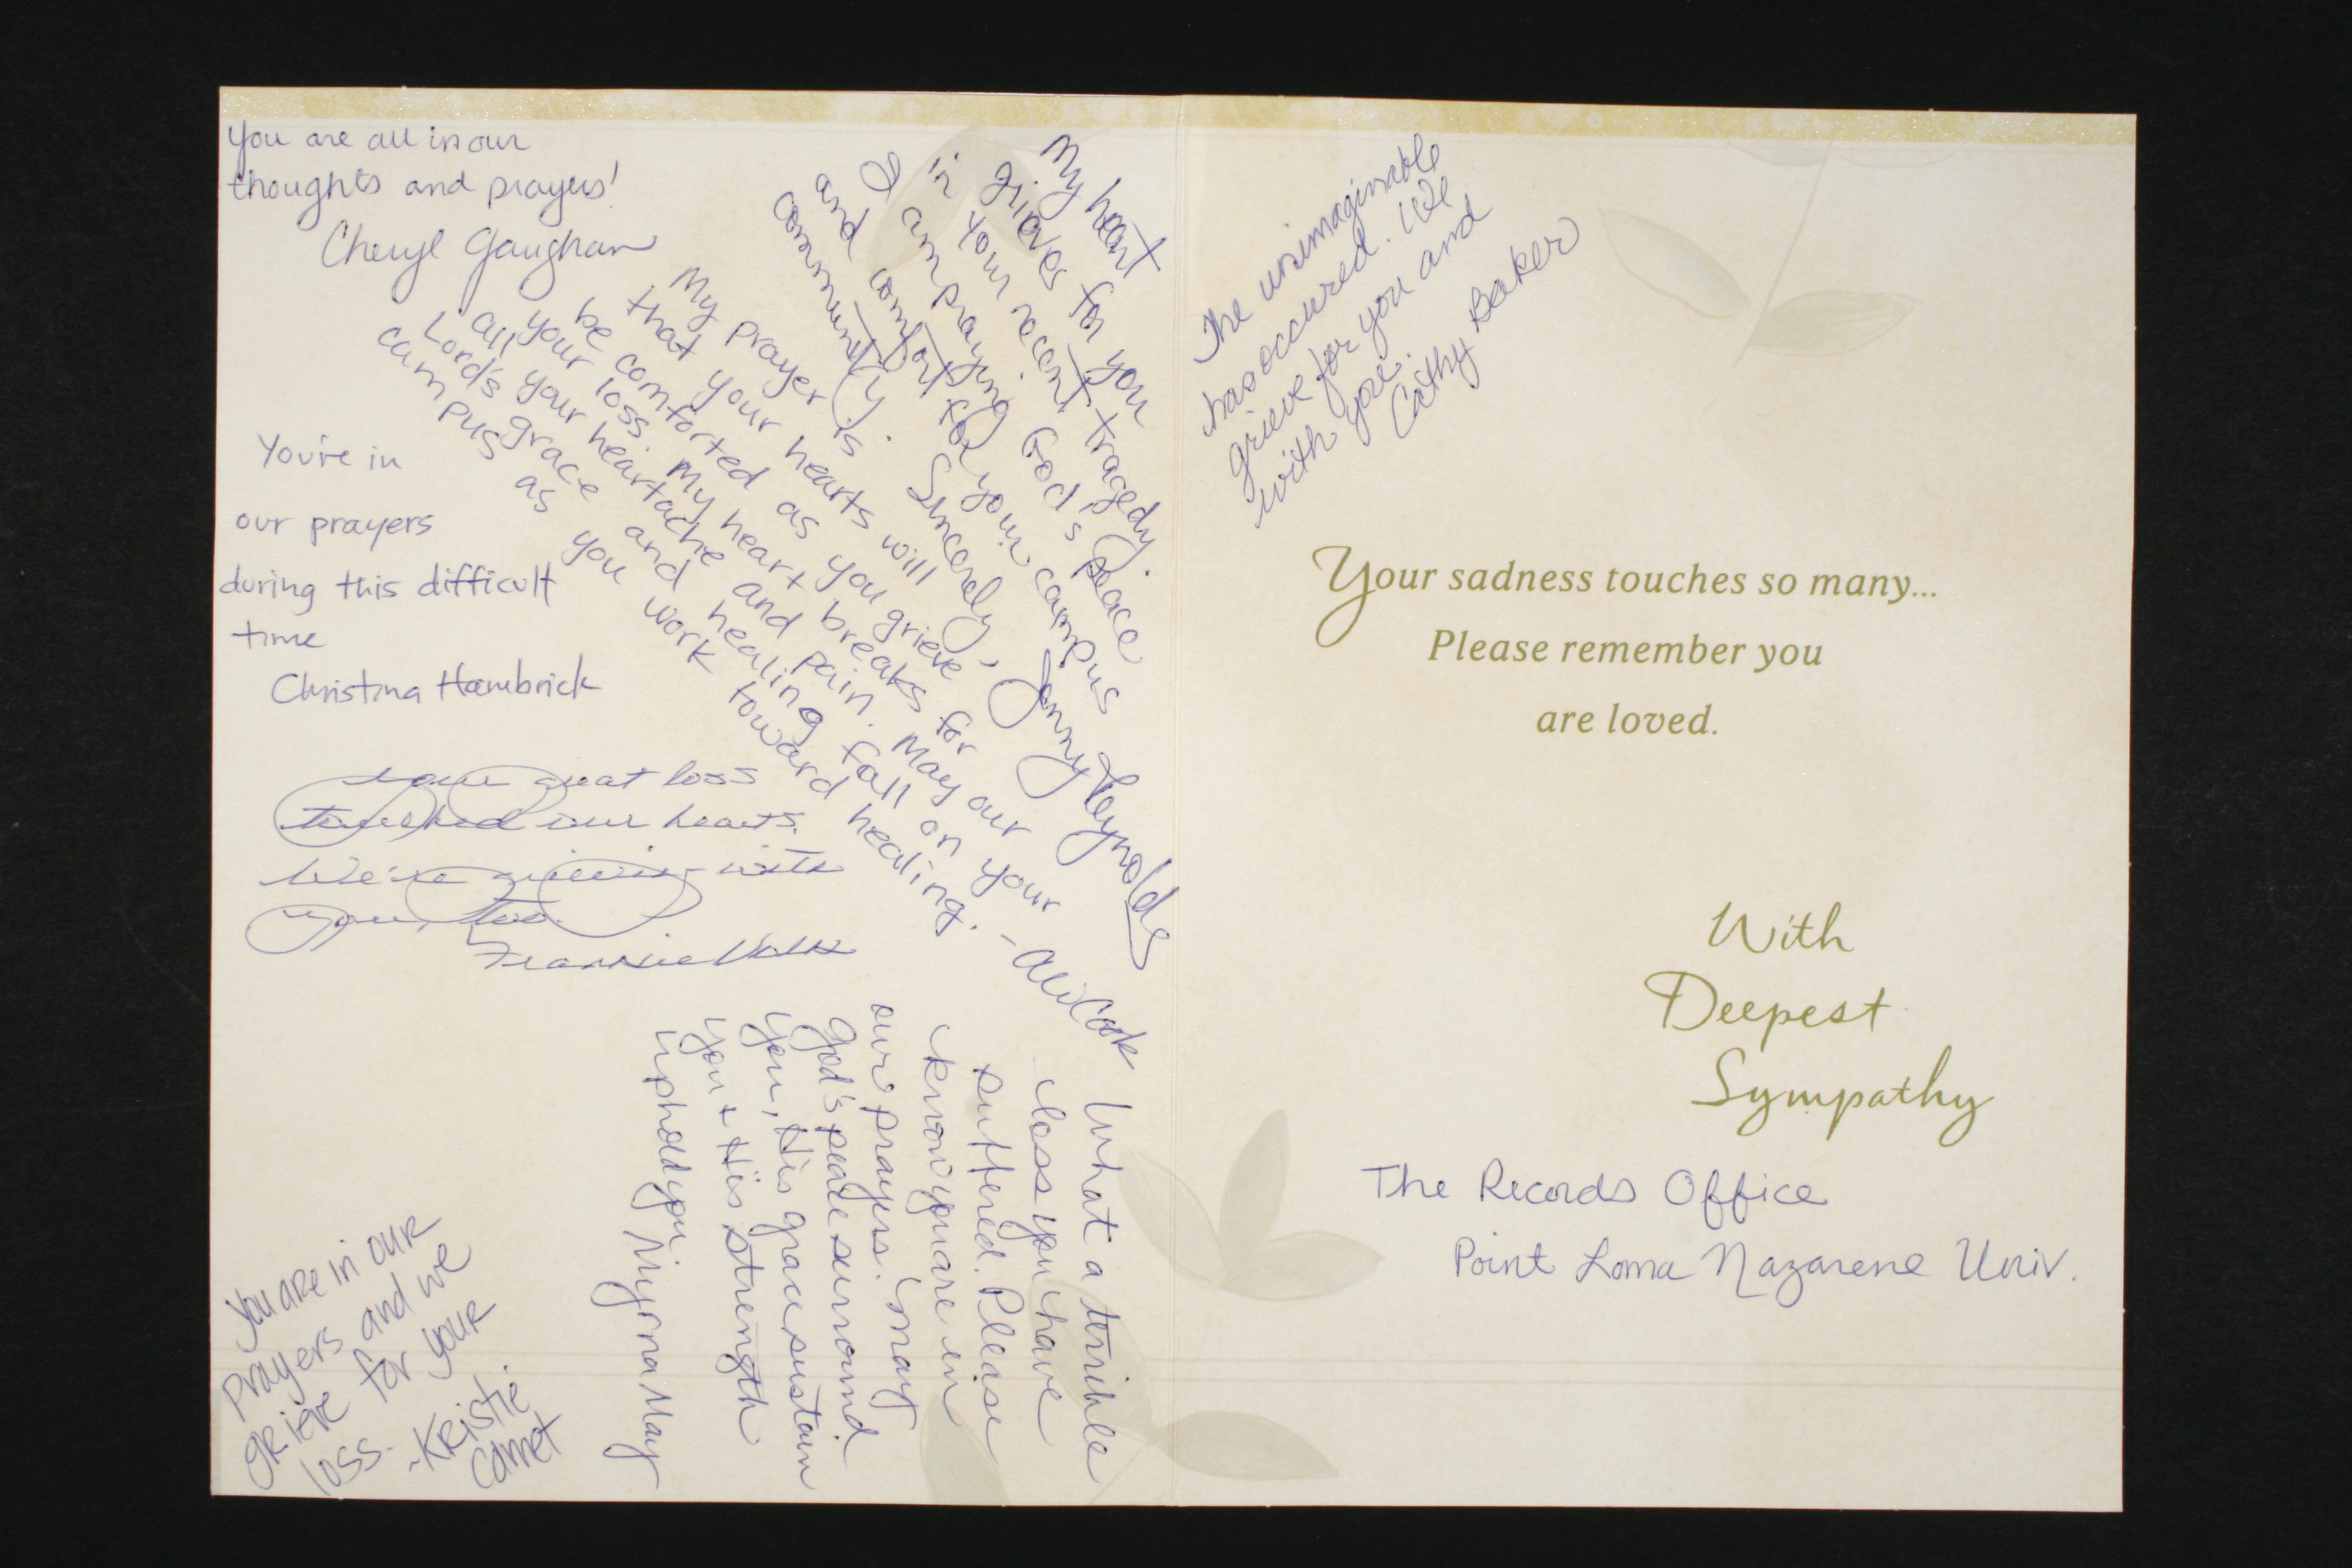 You are all in our
thoughts and prayers!
Cheryl Gaughan
My heart
grieves for you
in your recent tragedy.
I am praying God's peace
and comfort for your campus
community. Sincerely, Jenny Reynolds
My prayer is
that your hearts will
be comforted as you grieve
your loss. My heart breaks for
all your heartache and pain. May our
Lord's grace and healing fall on your
campus as you work toward healing.
- Alli Cook
You're in
our prayers
during this difficult
time
Christina Hambrick
Your great loss
touched our hearts.
We're grieving with
you, too.
Frankie
What a terrible
loss you have
suffered. Please
know you are in
our prayers. May
God's peace surround
you, His grace sustain
you & His strength
uphold you. Myrna May
You are in our
prayers and we
grieve for your
loss.
-Kristie
Camet
The unimaginable
has occurred. We
grieve for you and
with you.
Cathy Baker
Your sadness touches so many...
Please remember you
are loved.
With
Deepest
Sympathy
The Records Office
Point Loma Nazarene Univ.